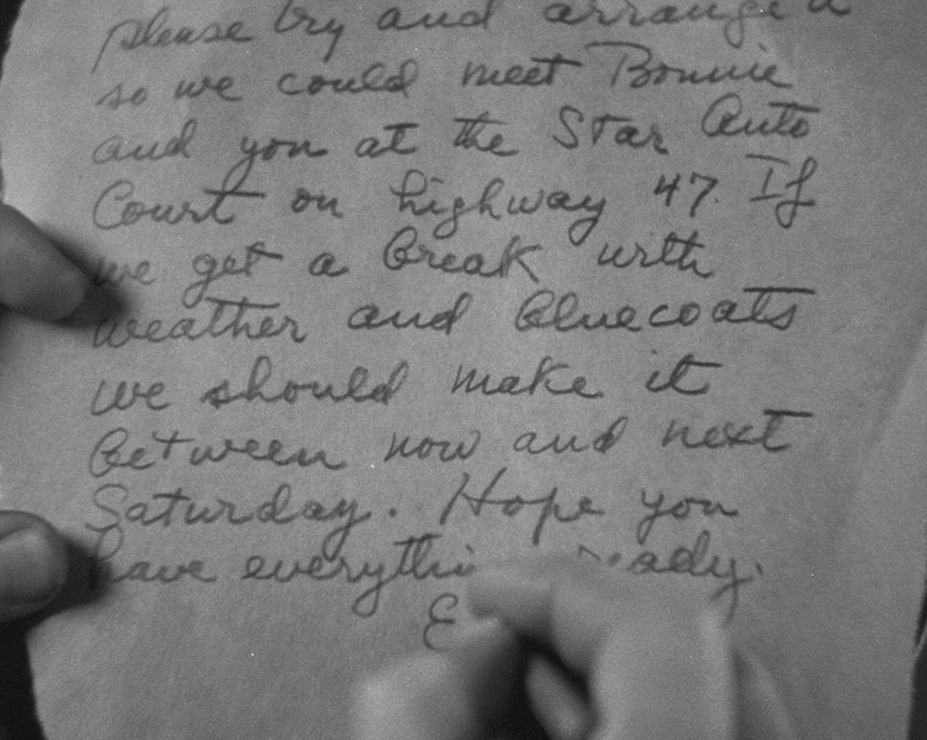 please try and arrange a
so we could meet Bonnie
and you at the Star Auto
Court on highway 47. If
we get a break with
weather and bluecoats
we should make it
between now and next
Saturday. Hope you
have
E